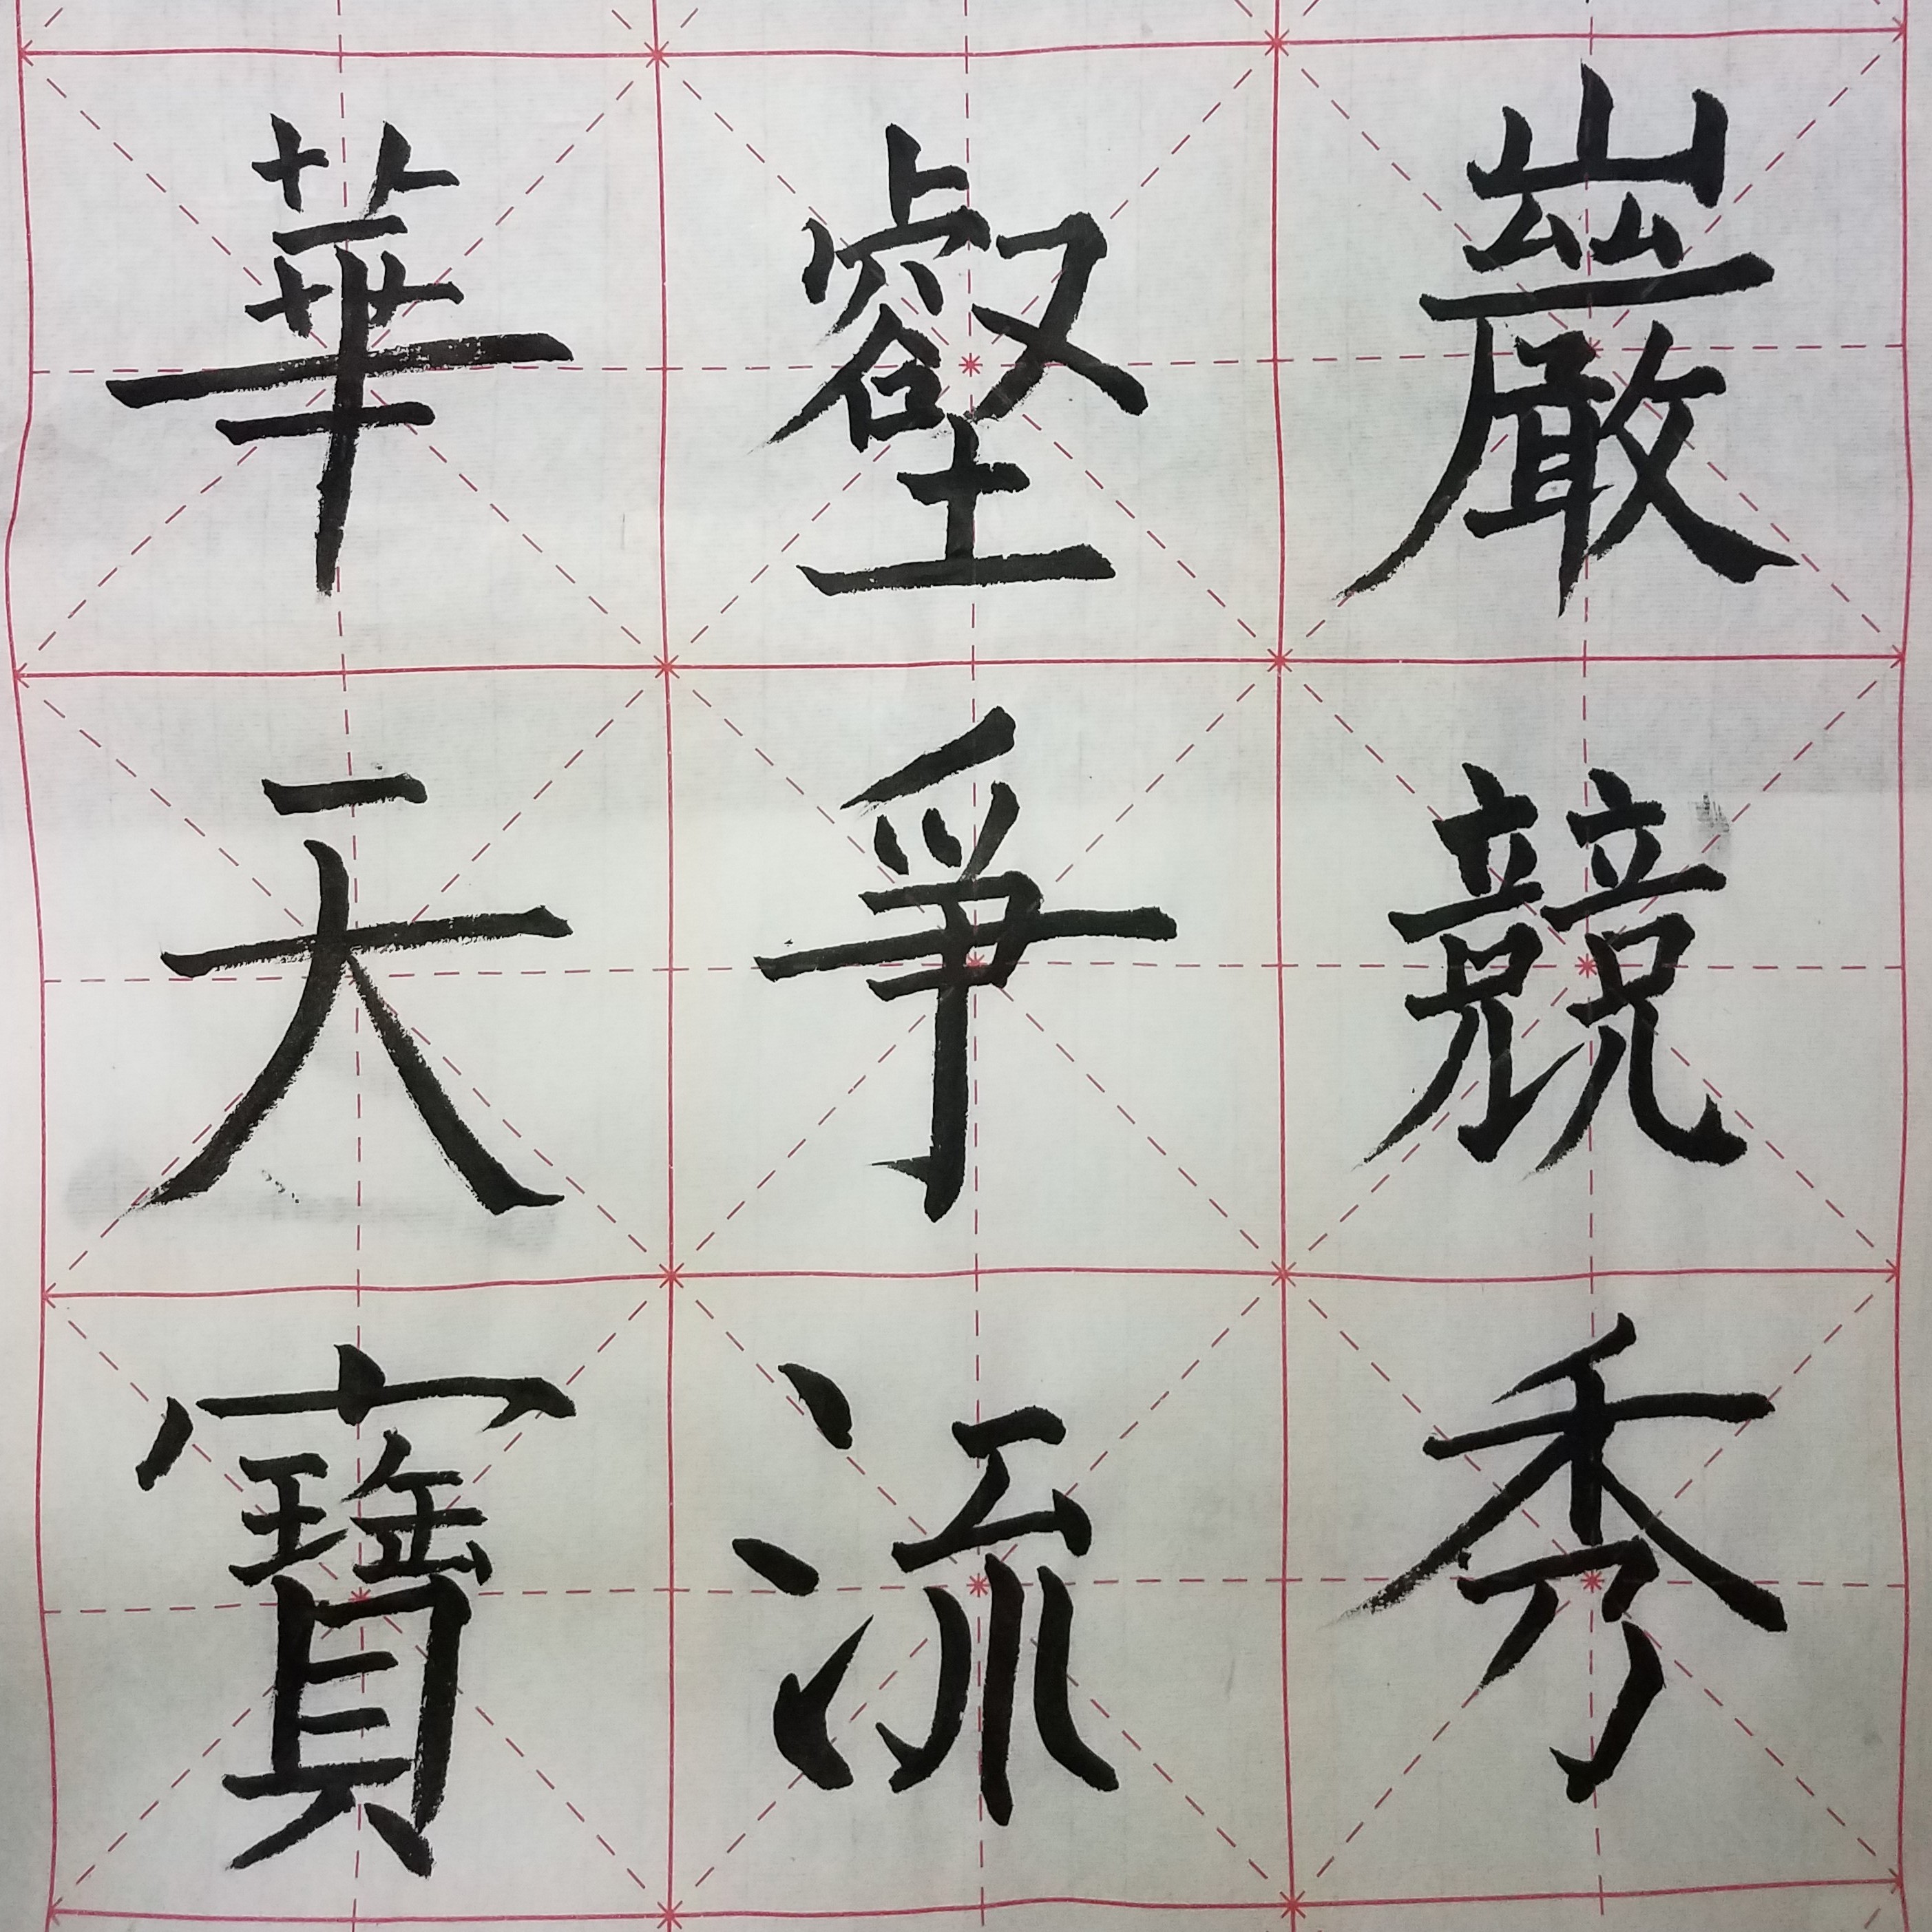 巖競秀
壑爭流
華天寶